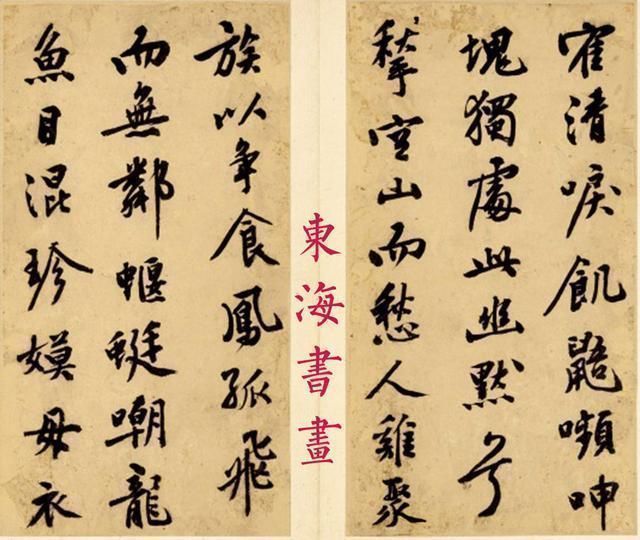 寉清唳飢鼯嚬呻
塊獨處此幽默兮
揫空山而愁人雞聚
東海書畫
族以争食鳳孤飛
而無鄰蝘蜓嘲龍
魚目混珍嫫母衣